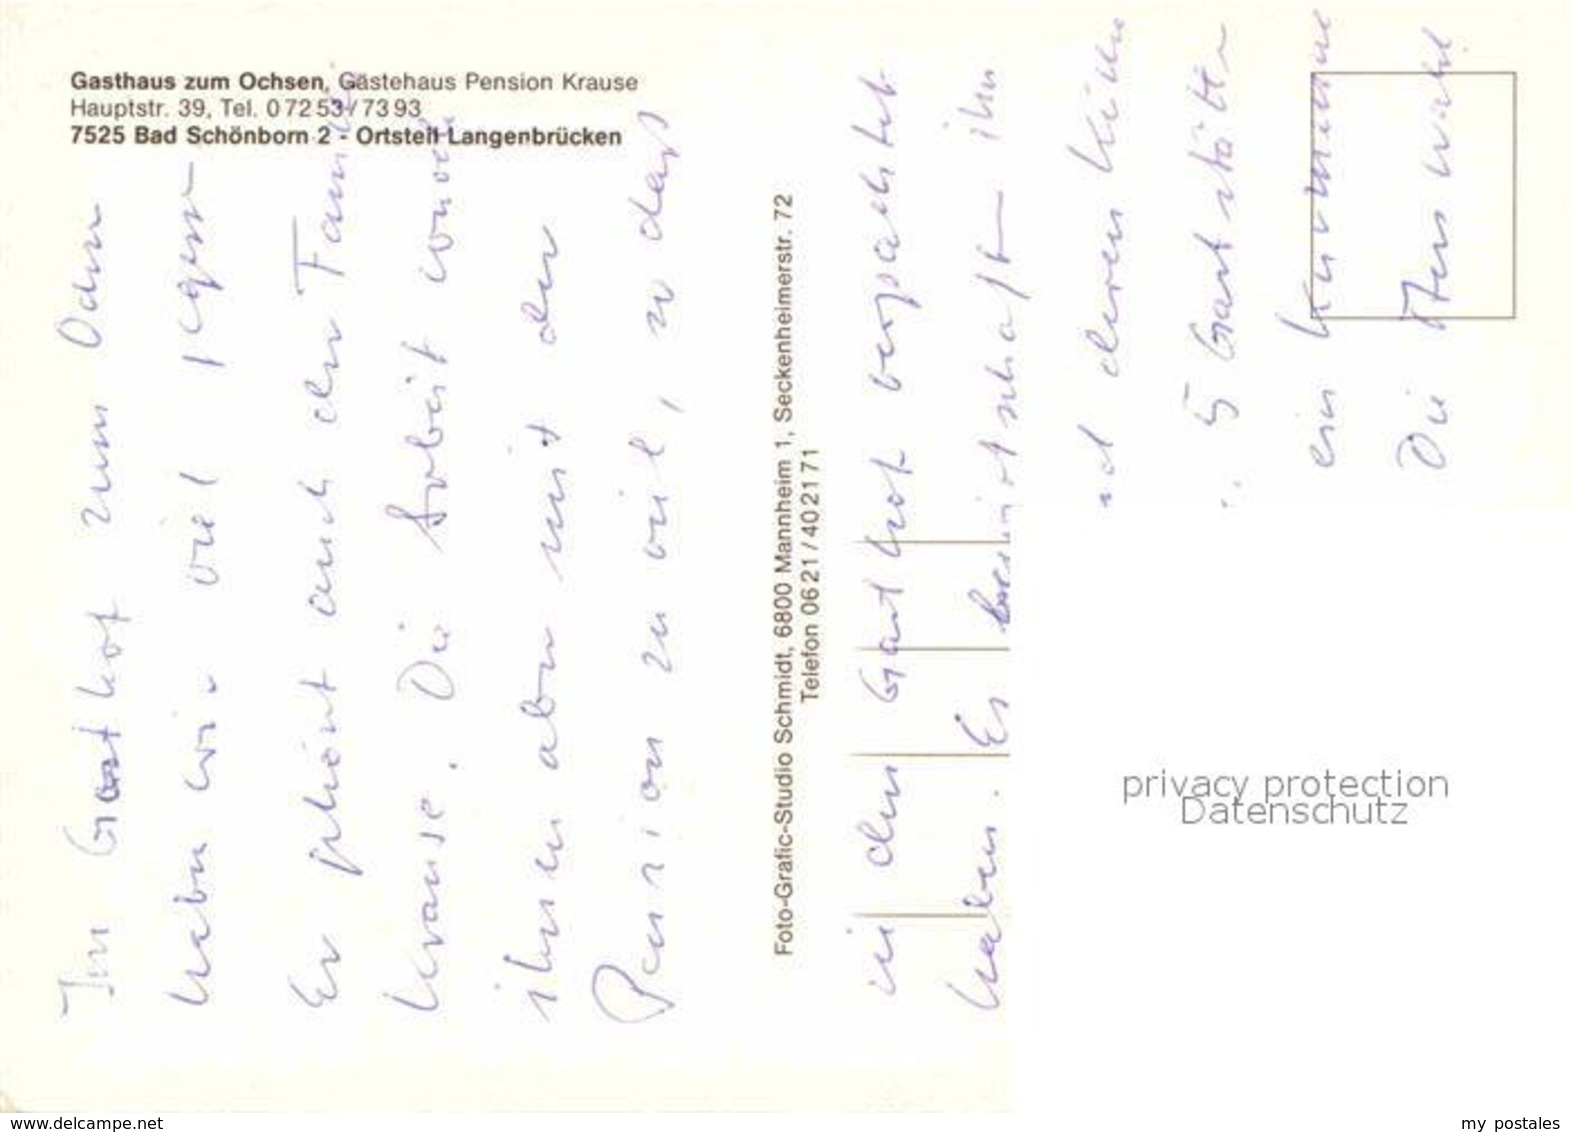 Gasthaus zum Ochsen, Gästehaus Pension Krause
Hauptstr. 39, Tel. 0 72 53 / 73 93
7525 Bad Schönborn 2 - Ortsteil Langenbrücken
Im Gasthof zum Ochsen
haben wir viel
Er gehört auch der Familie
Krause. Die Arbeit wurde
ihnen aber mit der
Pension zu viel, so dass
Foto-Grafic-Studio Schmidt, 6800 Mannheim 1, Seckenheimerstr. 72
Telefon 06 21 / 40 21 71
sie den Gasthof verpachtet
haben. Es bewirtschaften ihn
und deren
5 Gaststätten
ein
Die Auswahl
privacy protection
Datenschutz
www.delcampe.net
my postales